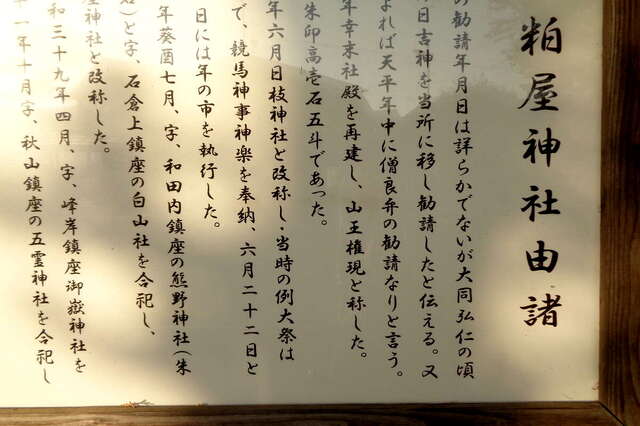 粕屋神社由諸
の勧請年月日は詳らかでないが大同弘仁の頃
日吉神を当所に移し勧請したと伝える。又
よれば天平年中に僧良弁の勧請なりと言う。
年幸末社殿を再建し、山王権現と称した。
朱印高壱石五斗であった。
年六月日枝神社と改称し・当時の例大祭は
で、競馬神事神楽を奉納、六月二十二日と
日には年の市を執行した。
年癸酉七月、字、和田内鎮座の熊野神社(朱
)と字、石倉上鎮座の白山社を合祀し、
神社と改称した。
和三十九年四月、字、峰岸鎮座御嶽神社を
十一年十月字、秋山鎮座の五霊神社を合祀し